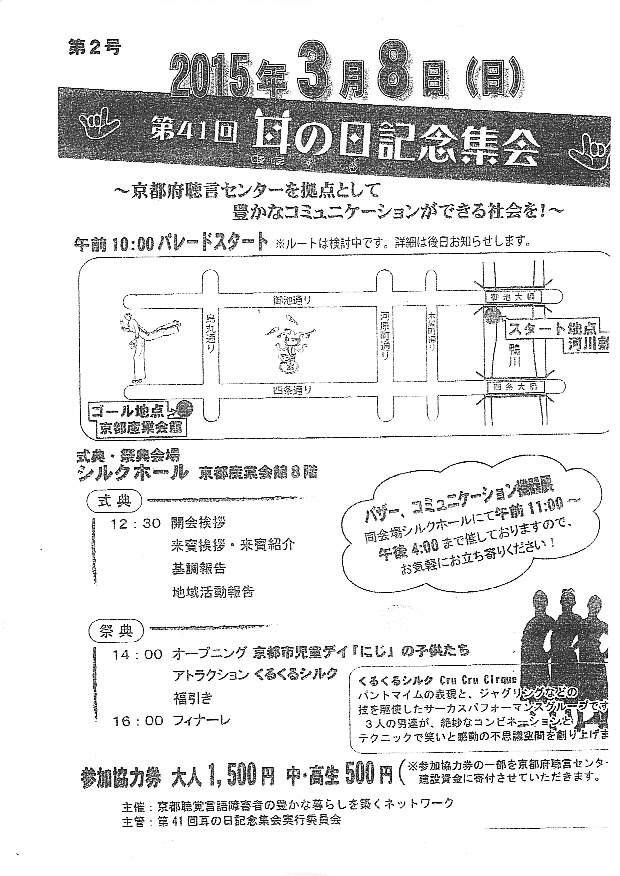 第2号
2015年3月8日(日)
第41回 耳の日記念集会
～京都府聴言センターを拠点として
豊かなコミュニケーションができる社会を!～
午前10:00パレードスタート ※ルートは検討中です。詳細は後日お知らせします。
御池通り
御池大橋
烏丸通り
河原町通り
木屋町通り
鴨川
スタート地点
河川敷
四条通り
四条大橋
ゴール地点
京都産業会館
式典・祭典会場
シルクホール 京都産業会館8階
バザー、コミュニケーション機器展
同会場シルクホールにて午前11:00～
午後4:00まで催しておりますので、
お気軽にお立ち寄りください!
式典
12:30 開会挨拶
来賓挨拶・来賓紹介
基調報告
地域活動報告
祭典
14:00 オープニング 京都市児童デイ『にじ』の子供たち
アトラクション くるくるシルク
福引き
16:00 フィナーレ
くるくるシルク Cru Cru Cirque
パントマイムの表現と、ジャグリングなどの
技を駆使したサーカスパフォーマンスグループです
3人の男達が、絶妙なコンビネーションと
テクニックで笑いと感動の不思議空間を創り上げま
参加協力券 大人1,500円 中・高生500円
(※参加協力券の一部を京都府聴言センタ
建設資金に寄付させていただきます。
主催:京都聴覚言語障害者の豊かな暮らしを築くネットワーク
主管:第41回耳の日記念集会実行委員会